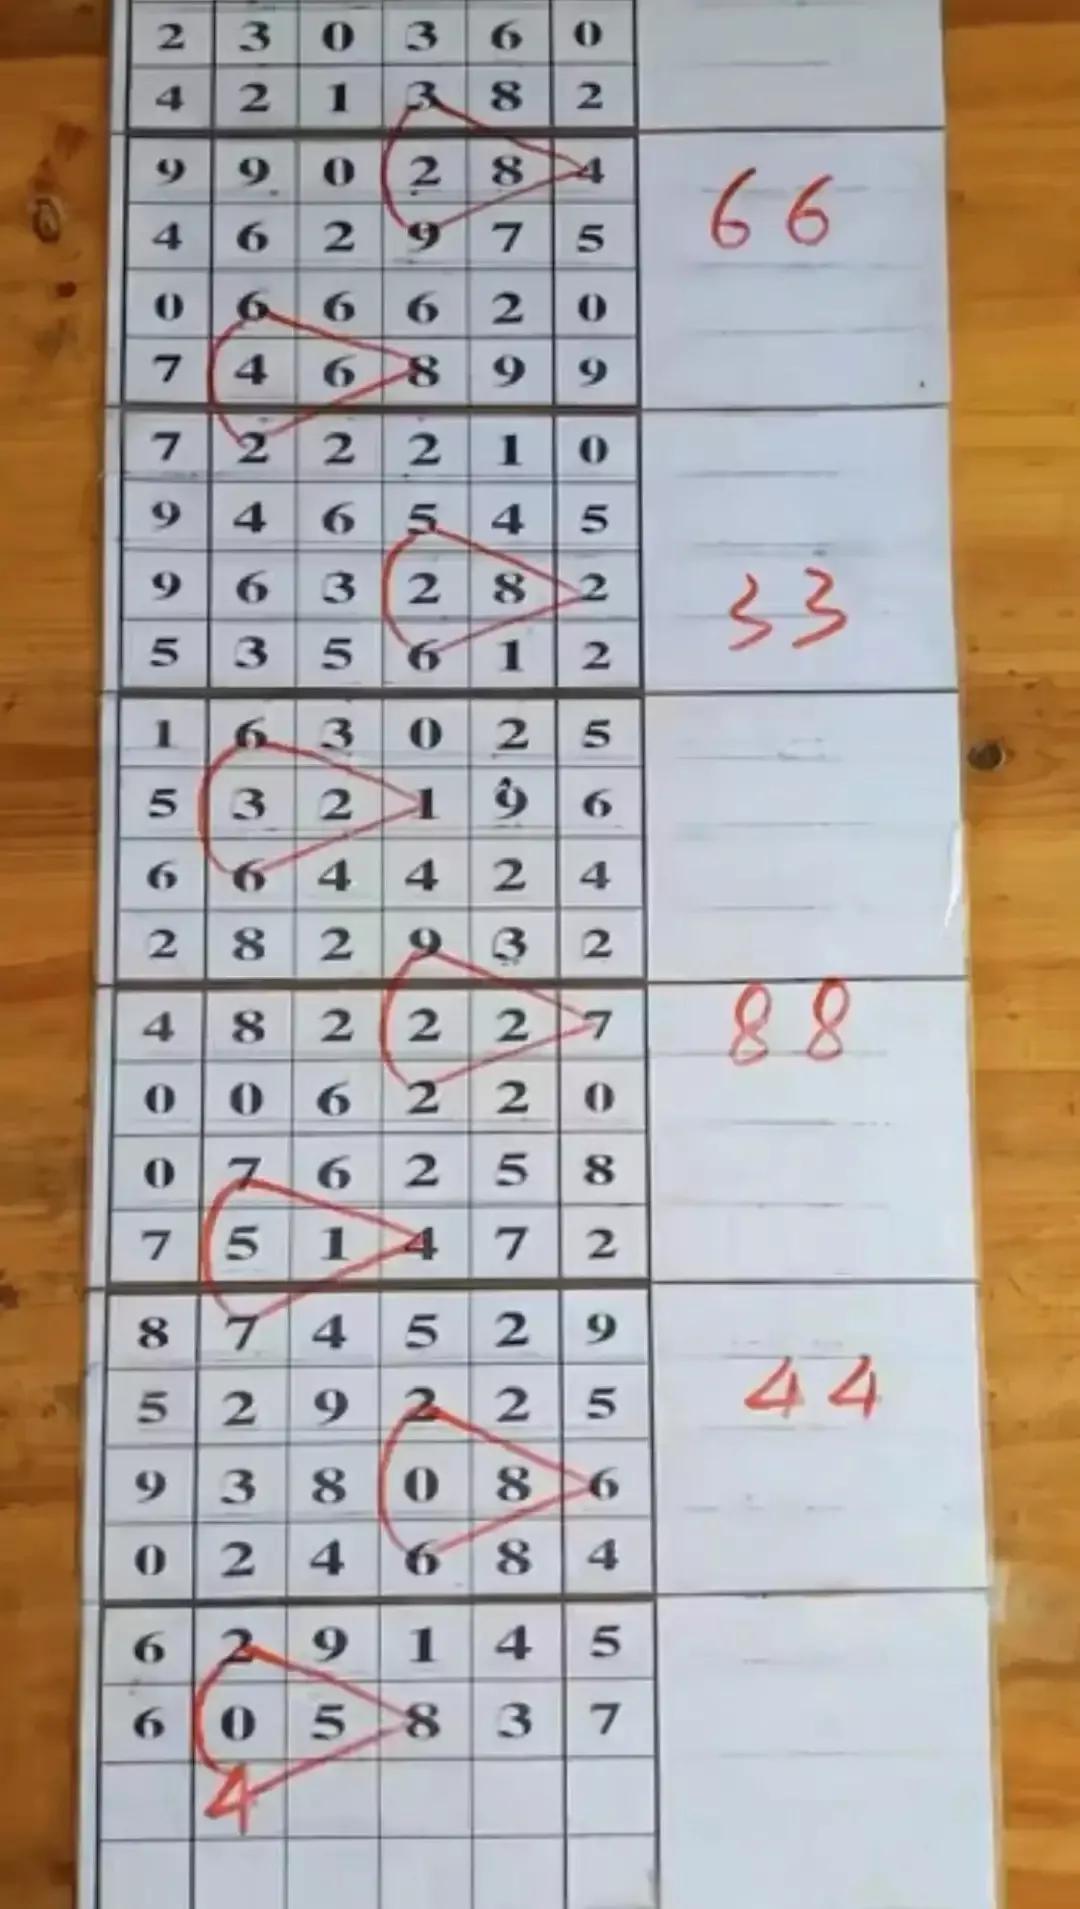 2 3 0 3 6 0
4 2 1 3 8 2
9 9 0 2 8 4
4 6 2 9 7 5
66
0 6 6 6 2 0
7 4 6 8 9 9
7 2 2 2 1 0
9 4 6 5 4 5
9 6 3 2 8 2
33
5 3 5 6 1 2
1 6 3 0 2 5
5 3 2 1 9 6
6 6 4 4 2 4
2 8 2 9 3 2
4 8 2 2 2 7
88
0 0 6 2 2 0
0 7 6 2 5 8
7 5 1 4 7 2
8 7 4 5 2 9
5 2 9 2 2 5
44
9 3 8 0 8 6
0 2 4 6 8 4
6 2 9 1 4 5
6 0 5 8 3 7
4